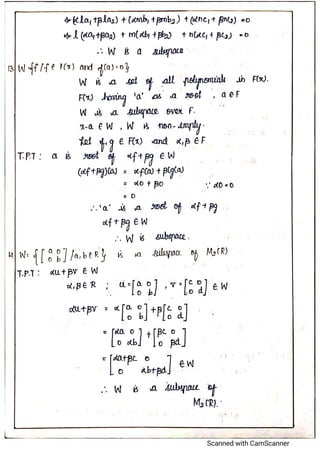 ⇒ (αla₁ + βla₂) + (αmb₁ + βmb₂) + (αnc₁ + βnc₂) = 0
⇒ l(αa₁ + βa₂) + m(αb₁ + βb₂) + n(αc₁ + βc₂) = 0
∴ W is a subspace
13. W {f/f ∈ F(x) and f(a) = 0}
W is a set of all polynomials in F(x).
F(x) having 'a' as a root, a ∈ F
W is a subspace over F.
x-a ∈ W, W is non-empty.
Let f, g ∈ F(x) and α, β ∈ F
T.P.T : a is root of αf + βg ∈ W
(αf + βg)(a) = αf(a) + β(g(a)
= α0 + β0 ∵ α0 = 0
= 0
∴ 'a' is a root of αf + βg
αf + βg ∈ W
∴ W is subspace.
W = {[a 0 / 0 b] / a, b ∈ R} is a subspace of M₂(R)
T.P.T : αu + βv ∈ W
α, β ∈ R ; u = [a 0 / 0 b], v = [c 0 / 0 d] ∈ W
αu + βv = α[a 0 / 0 b] + β[c 0 / 0 d]
= [αa 0 / 0 αb] + [βc 0 / 0 βd]
= [αa+βc 0 / 0 αb+βd] ∈ W
∴ W is a subspace of
M₂(R).
Scanned with CamScanner